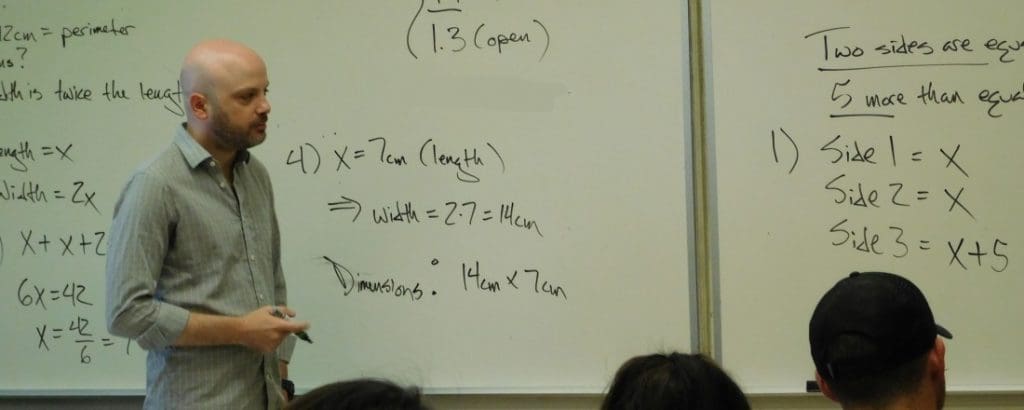 2cm = perimeter
?
is twice the
= x
= 2x
x + x + 2
6x = 42
x = 42/6 =
1.3 (open)
4) x = 7cm (length)
⇒ width = 2·7 = 14cm
Dimensions: 14cm x 7cm
Two sides are
5 more than
1) Side 1 = x
Side 2 = x
Side 3 = x+5